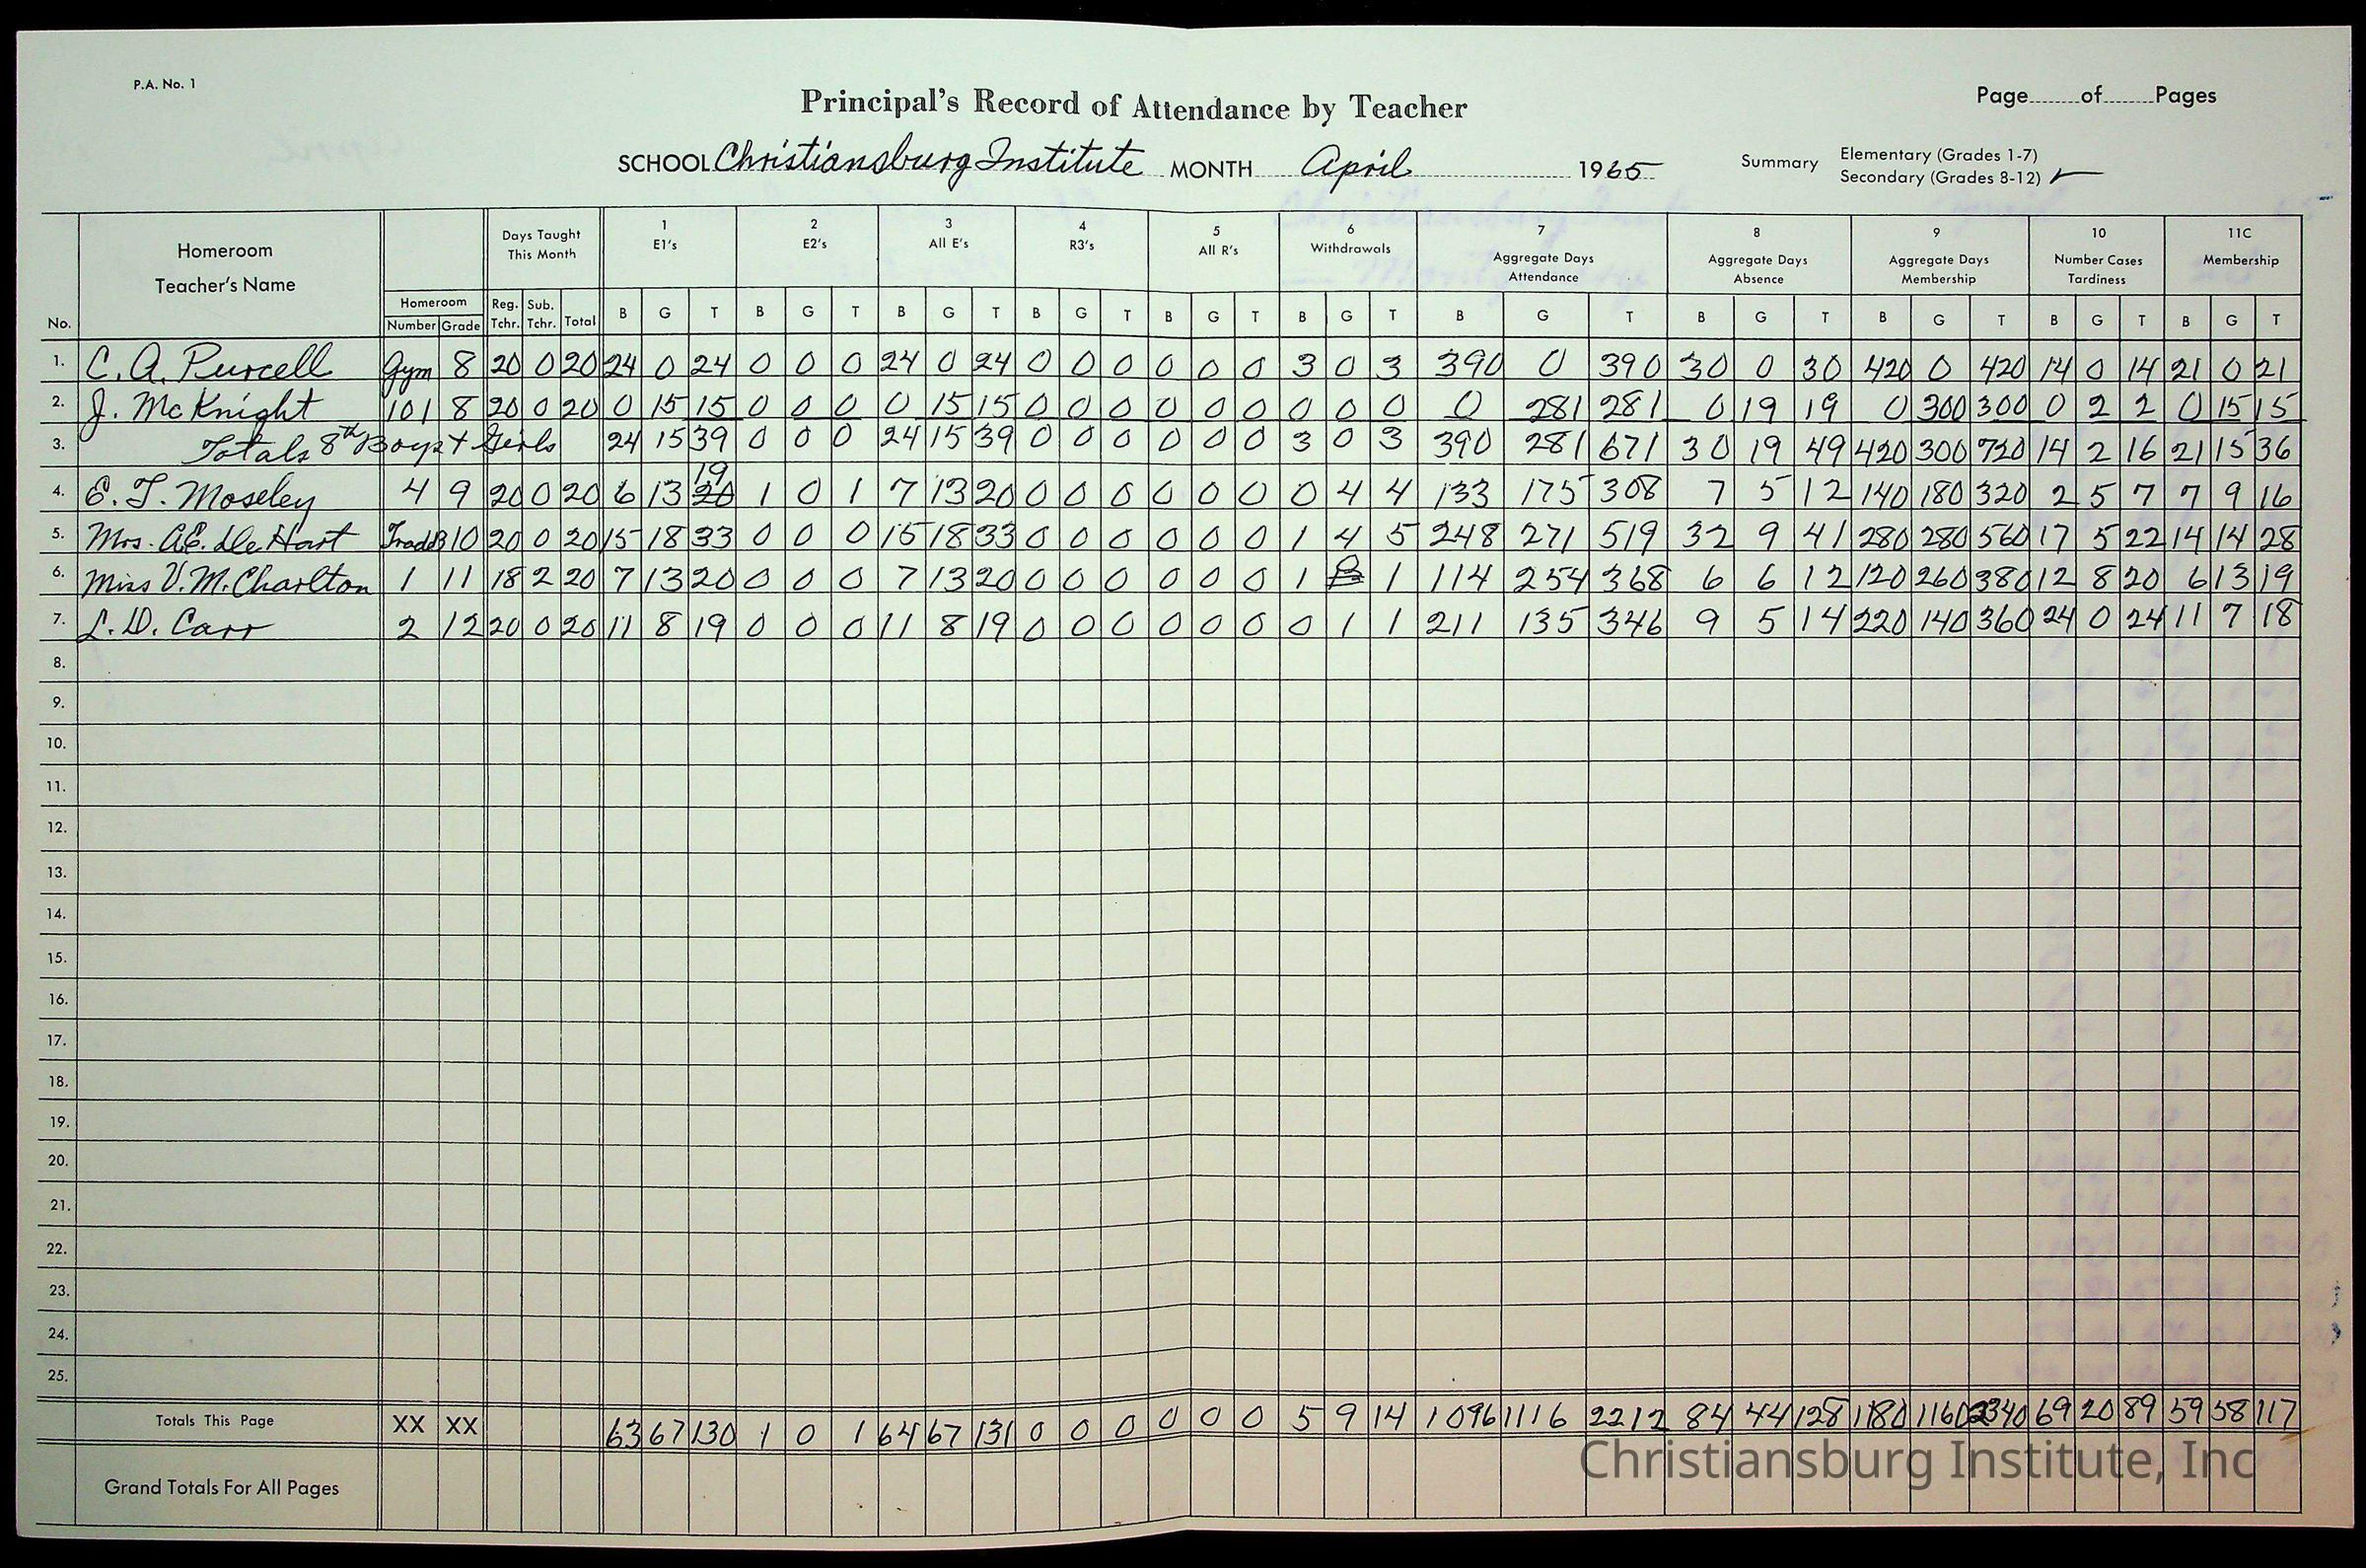 P.A. No. 1
Principal's Record of Attendance by Teacher
Page........of........Pages
SCHOOL Christiansburg Institute MONTH April 1965
Summary Elementary (Grades 1-7)
Secondary (Grades 8-12) ✓
No. Homeroom Teacher's Name Homeroom Number Grade Days Taught This Month Reg. Tchr. Sub. Tchr. Total 1 E1's B G T 2 E2's B G T 3 All E's B G T 4 R3's B G T 5 All R's B G T 6 Withdrawals B G T 7 Aggregate Days Attendance B G T 8 Aggregate Days Absence B G T 9 Aggregate Days Membership B G T 10 Number Cases Tardiness B G T 11C Membership B G T
1. C. A. Purcell Gym 8 20 0 20 24 0 24 0 0 0 24 0 24 0 0 0 0 0 0 3 0 3 390 0 390 30 0 30 420 0 420 14 0 14 21 0 21
2. J. McKnight 101 8 20 0 20 0 15 15 0 0 0 0 15 15 0 0 0 0 0 0 0 0 0 0 281 281 0 19 19 0 300 300 0 2 2 0 15 15
3. Totals 8th Boys + Girls 24 15 39 0 0 0 24 15 39 0 0 0 0 0 0 3 0 3 390 281 671 30 19 49 420 300 720 14 2 16 21 15 36
4. E. T. Moseley 4 9 20 0 20 6 13 20 19 1 0 1 7 13 20 0 0 0 0 0 0 0 4 4 133 175 308 7 5 12 140 180 320 2 5 7 7 9 16
5. Mrs. A.E. De Hart TradeB 10 20 0 20 15 18 33 0 0 0 15 18 33 0 0 0 0 0 0 1 4 5 248 271 519 32 9 41 280 280 560 17 5 22 14 14 28
6. Miss V. M. Charlton 1 11 18 2 20 7 13 20 0 0 0 7 13 20 0 0 0 0 0 0 1 1 114 254 368 6 6 12 120 260 380 12 8 20 6 13 19
7. L. D. Carr 2 12 20 0 20 11 8 19 0 0 0 11 8 19 0 0 0 0 0 0 0 1 1 211 135 346 9 5 14 220 140 360 24 0 24 11 7 18
8.
9.
10.
11.
12.
13.
14.
15.
16.
17.
18.
19.
20.
21.
22.
23.
24.
25.
Totals This Page XX XX 63 67 130 1 0 1 64 67 131 0 0 0 0 0 0 5 9 14 1096 1116 2212 84 44 128 1180 1160 2340 69 20 89 59 58 117
Grand Totals For All Pages
Christiansburg Institute, Inc